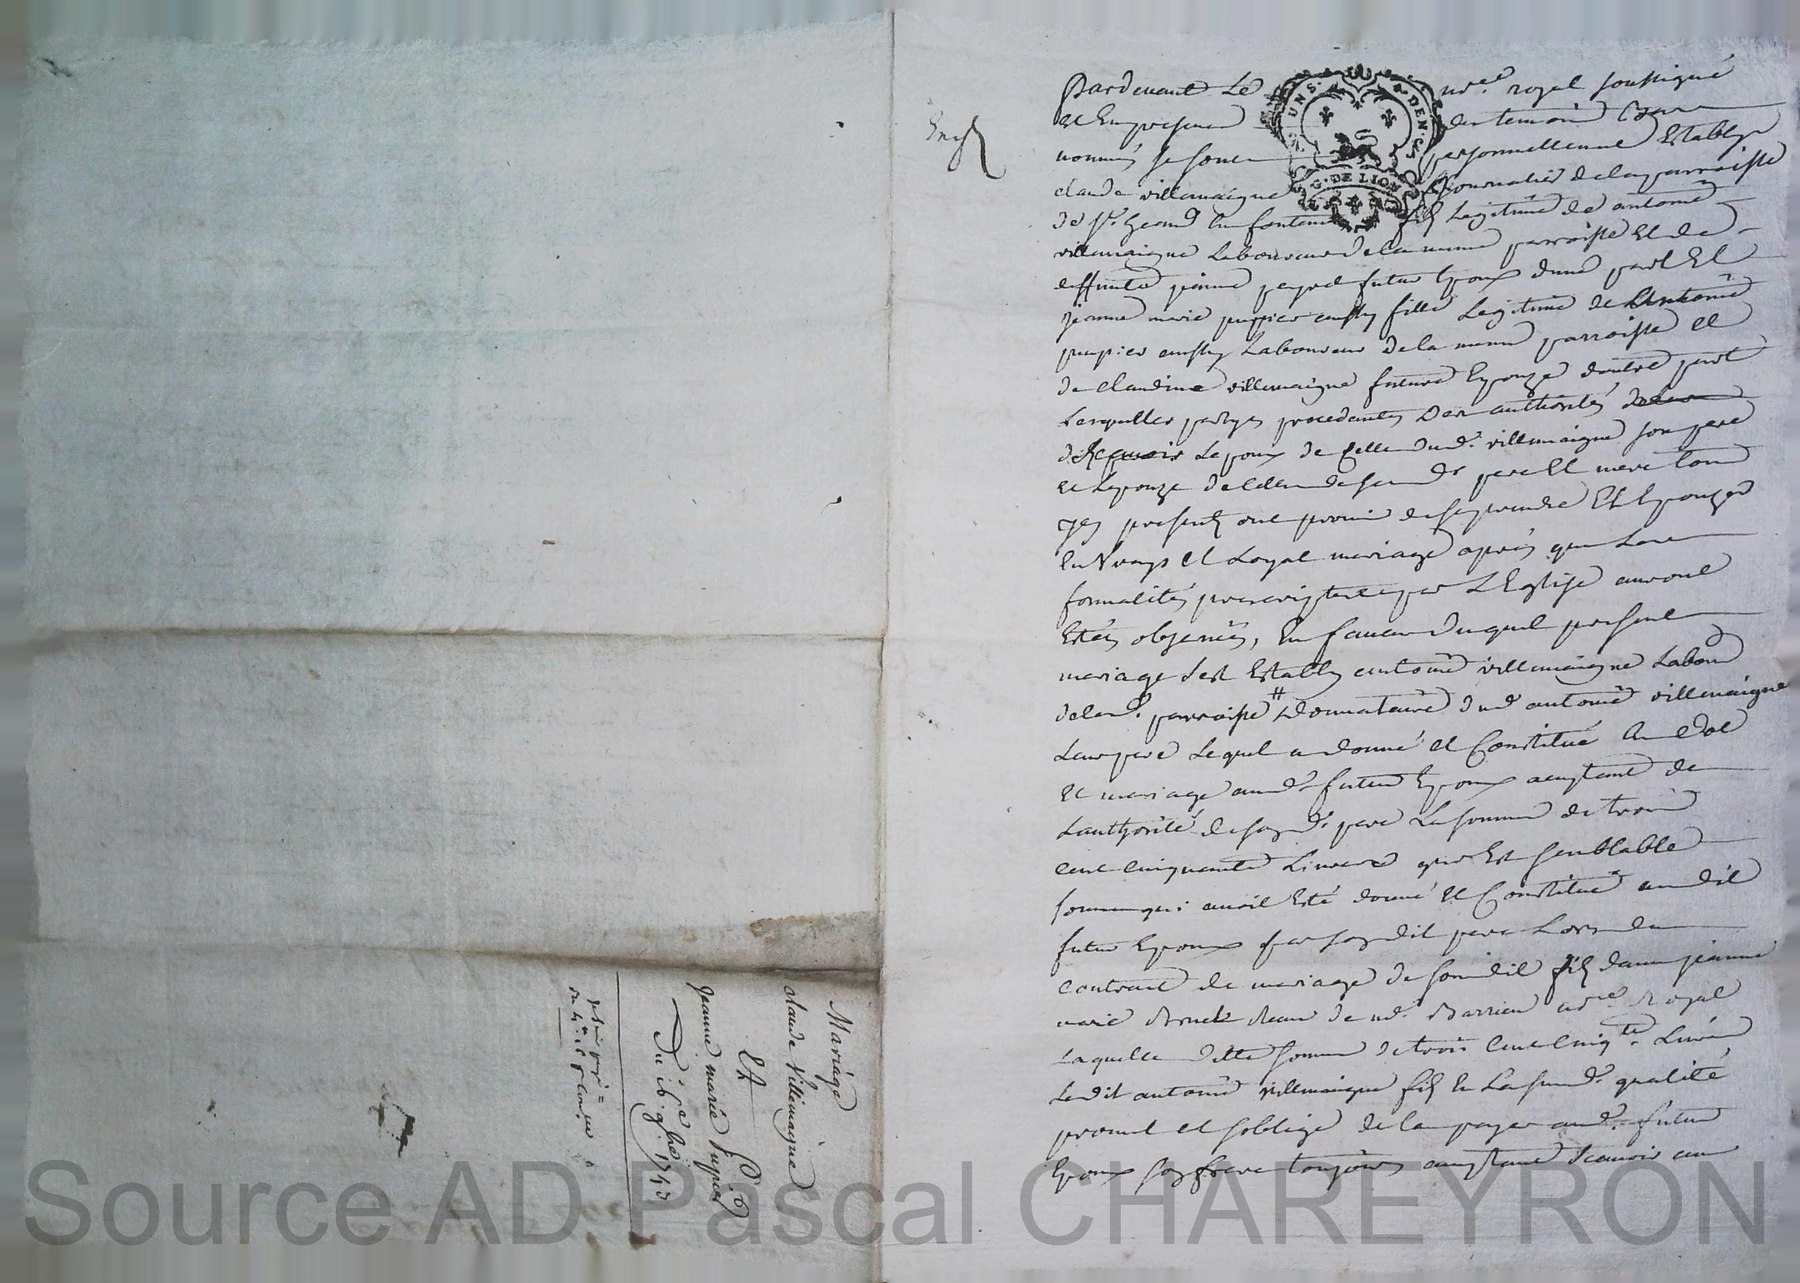 Mariage
claude Villemagne
Et
Jeanne marie Pupier
Du 16 1743
Pardevant Le no.re royal soussigné
UNS. DEN.
G. DE LION
Et En presence des temoins Bas
nommés se sont personnellement Establys
claude villemaigne Journalier de la parroisse
de St. heand En fontanes fils Legitime de antoine
villemaigne Laboureur de la meme parroisse Et de
deffunte jeanne peyret futur Epoux d'une part Et
jeanne marie puppier aussy fille Legitime de Antoine
puppier aussy Laboureur de la meme parroisse et
de claudine villemaigne future Epouze d'autre part
Lesquelles partyes procedantes des authorités
Lepoux de Celle dud. villemaigne son pere
et Lepouze de Celles de sesd. pere Et mere tous
icy presents ont promis de se prendre Et Epouzer
En Vrays et Loyal mariage après que Les
formalités prescriptes par L'Eglise auront
Estés observés, En faveur duquel present
mariage s'est Estably antoine villemaigne Labour
de lad. parroisse # donnataire dud antoine villemaigne
Leur pere Lequel a donné et Constitué En dot
Et mariage aud. futur Epoux acceptant de
Lauthorité de sond. pere La somme de trois
cent cinquante Livres que Est semblable
somme qui avoit Esté donné et Constitué audit
futur Epoux par sondit pere Lors du
contract de mariage de sondit fils dame jeanne
marie receu de me. Barrieu no.re Royal
Laquelle ditte somme de trois Cent Cinq.te Livres
Ledit antoine villemaigne fils En La susd. qualité
promet et s'oblige de la payer aud. futur
Epoux son frere toujours acceptant scavoir au
Source AD Pascal CHAREYRON